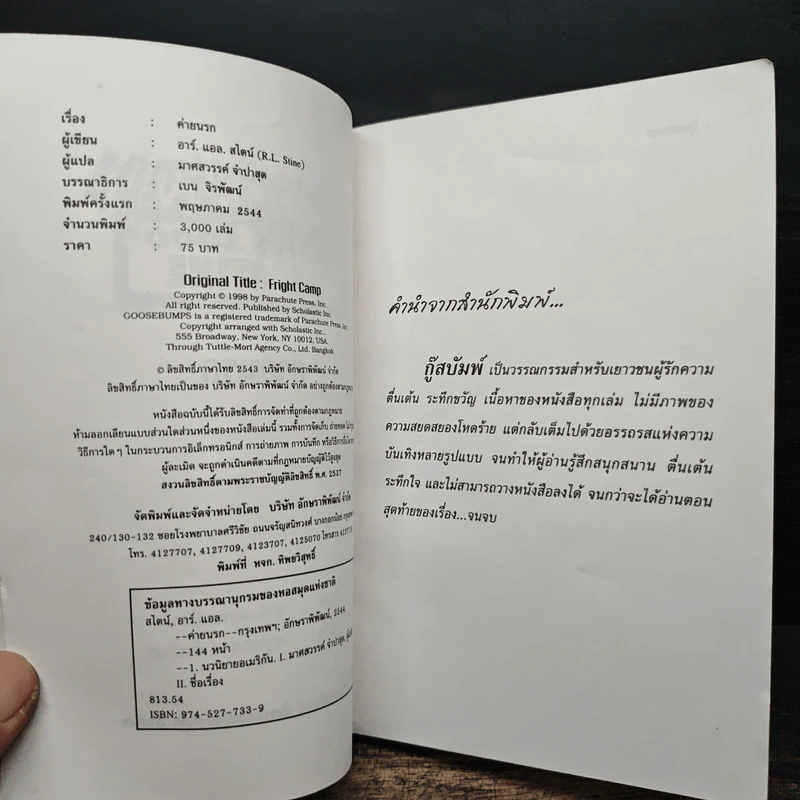 เรื่อง : ค่ายนรก
ผู้เขียน : อาร์. แอล. สไตน์ (R.L. Stine)
ผู้แปล : มาศสวรรค์ จำปาสุต
บรรณาธิการ : เบน จิรพัฒน์
พิมพ์ครั้งแรก : พฤษภาคม 2544
จำนวนพิมพ์ : 3,000 เล่ม
ราคา : 75 บาท
Original Title : Fright Camp
Copyright © 1998 by Parachute Press, Inc.
All right reserved. Published by Scholastic Inc.
GOOSEBUMPS is a registered trademark of Parachute Press, Inc.
Copyright arranged with Scholastic Inc.,
555 Broadway, New York, NY 10012, USA.
Through Tuttle-Mori Agency Co., Ltd. Bangkok
© ลิขสิทธิ์ภาษาไทย 2543 บริษัท อักษราพิพัฒน์ จำกัด
ลิขสิทธิ์ภาษาไทยเป็นของ บริษัท อักษราพิพัฒน์ จำกัด อย่างถูกต้องตามกฎหมาย
หนังสือฉบับนี้ได้รับลิขสิทธิ์การจัดทำที่ถูกต้องตามกฎหมาย
ห้ามลอกเลียนแบบส่วนใดส่วนหนึ่งของหนังสือเล่มนี้ รวมทั้งการจัดเก็บ ถ่ายทอด ไม่ว่า
วิธีการใด ๆ ในกระบวนการอิเล็กทรอนิกส์ การถ่ายภาพ การบันทึก หรือวิธีการอื่นใด
ผู้ละเมิด จะถูกดำเนินคดีตามที่กฎหมายบัญญัติไว้สูงสุด
สงวนลิขสิทธิ์ตามพระราชบัญญัติลิขสิทธิ์ พ.ศ. 2537
จัดพิมพ์และจัดจำหน่ายโดย บริษัท อักษราพิพัฒน์ จำกัด
240/130-132 ซอยโรงพยาบาลศรีวิชัย ถนนจรัญสนิทวงศ์ บางกอกน้อย
โทร. 4127707, 4127709, 4123707, 4125070 โทรสาร
พิมพ์ที่ หจก. ทิพยวิสุทธิ์
ข้อมูลทางบรรณานุกรมของหอสมุดแห่งชาติ
สไตน์, อาร์. แอล.
--ค่ายนรก--กรุงเทพฯ; อักษราพิพัฒน์, 2544
--144 หน้า
--1. นวนิยายอเมริกัน. I. มาศสวรรค์ จำปาสุต,
II. ชื่อเรื่อง
813.54
ISBN: 974-527-733-9
คำนำจากสำนักพิมพ์...
กู๊สบัมพ์ เป็นวรรณกรรมสำหรับเยาวชนผู้รักความ
ตื่นเต้น ระทึกขวัญ เนื้อหาของหนังสือทุกเล่ม ไม่มีภาพของ
ความสยดสยองโหดร้าย แต่กลับเต็มไปด้วยอรรถรสแห่งความ
บันเทิงหลายรูปแบบ จนทำให้ผู้อ่านรู้สึกสนุกสนาน ตื่นเต้น
ระทึกใจ และไม่สามารถวางหนังสือลงได้ จนกว่าจะได้อ่านตอน
สุดท้ายของเรื่อง...จนจบ